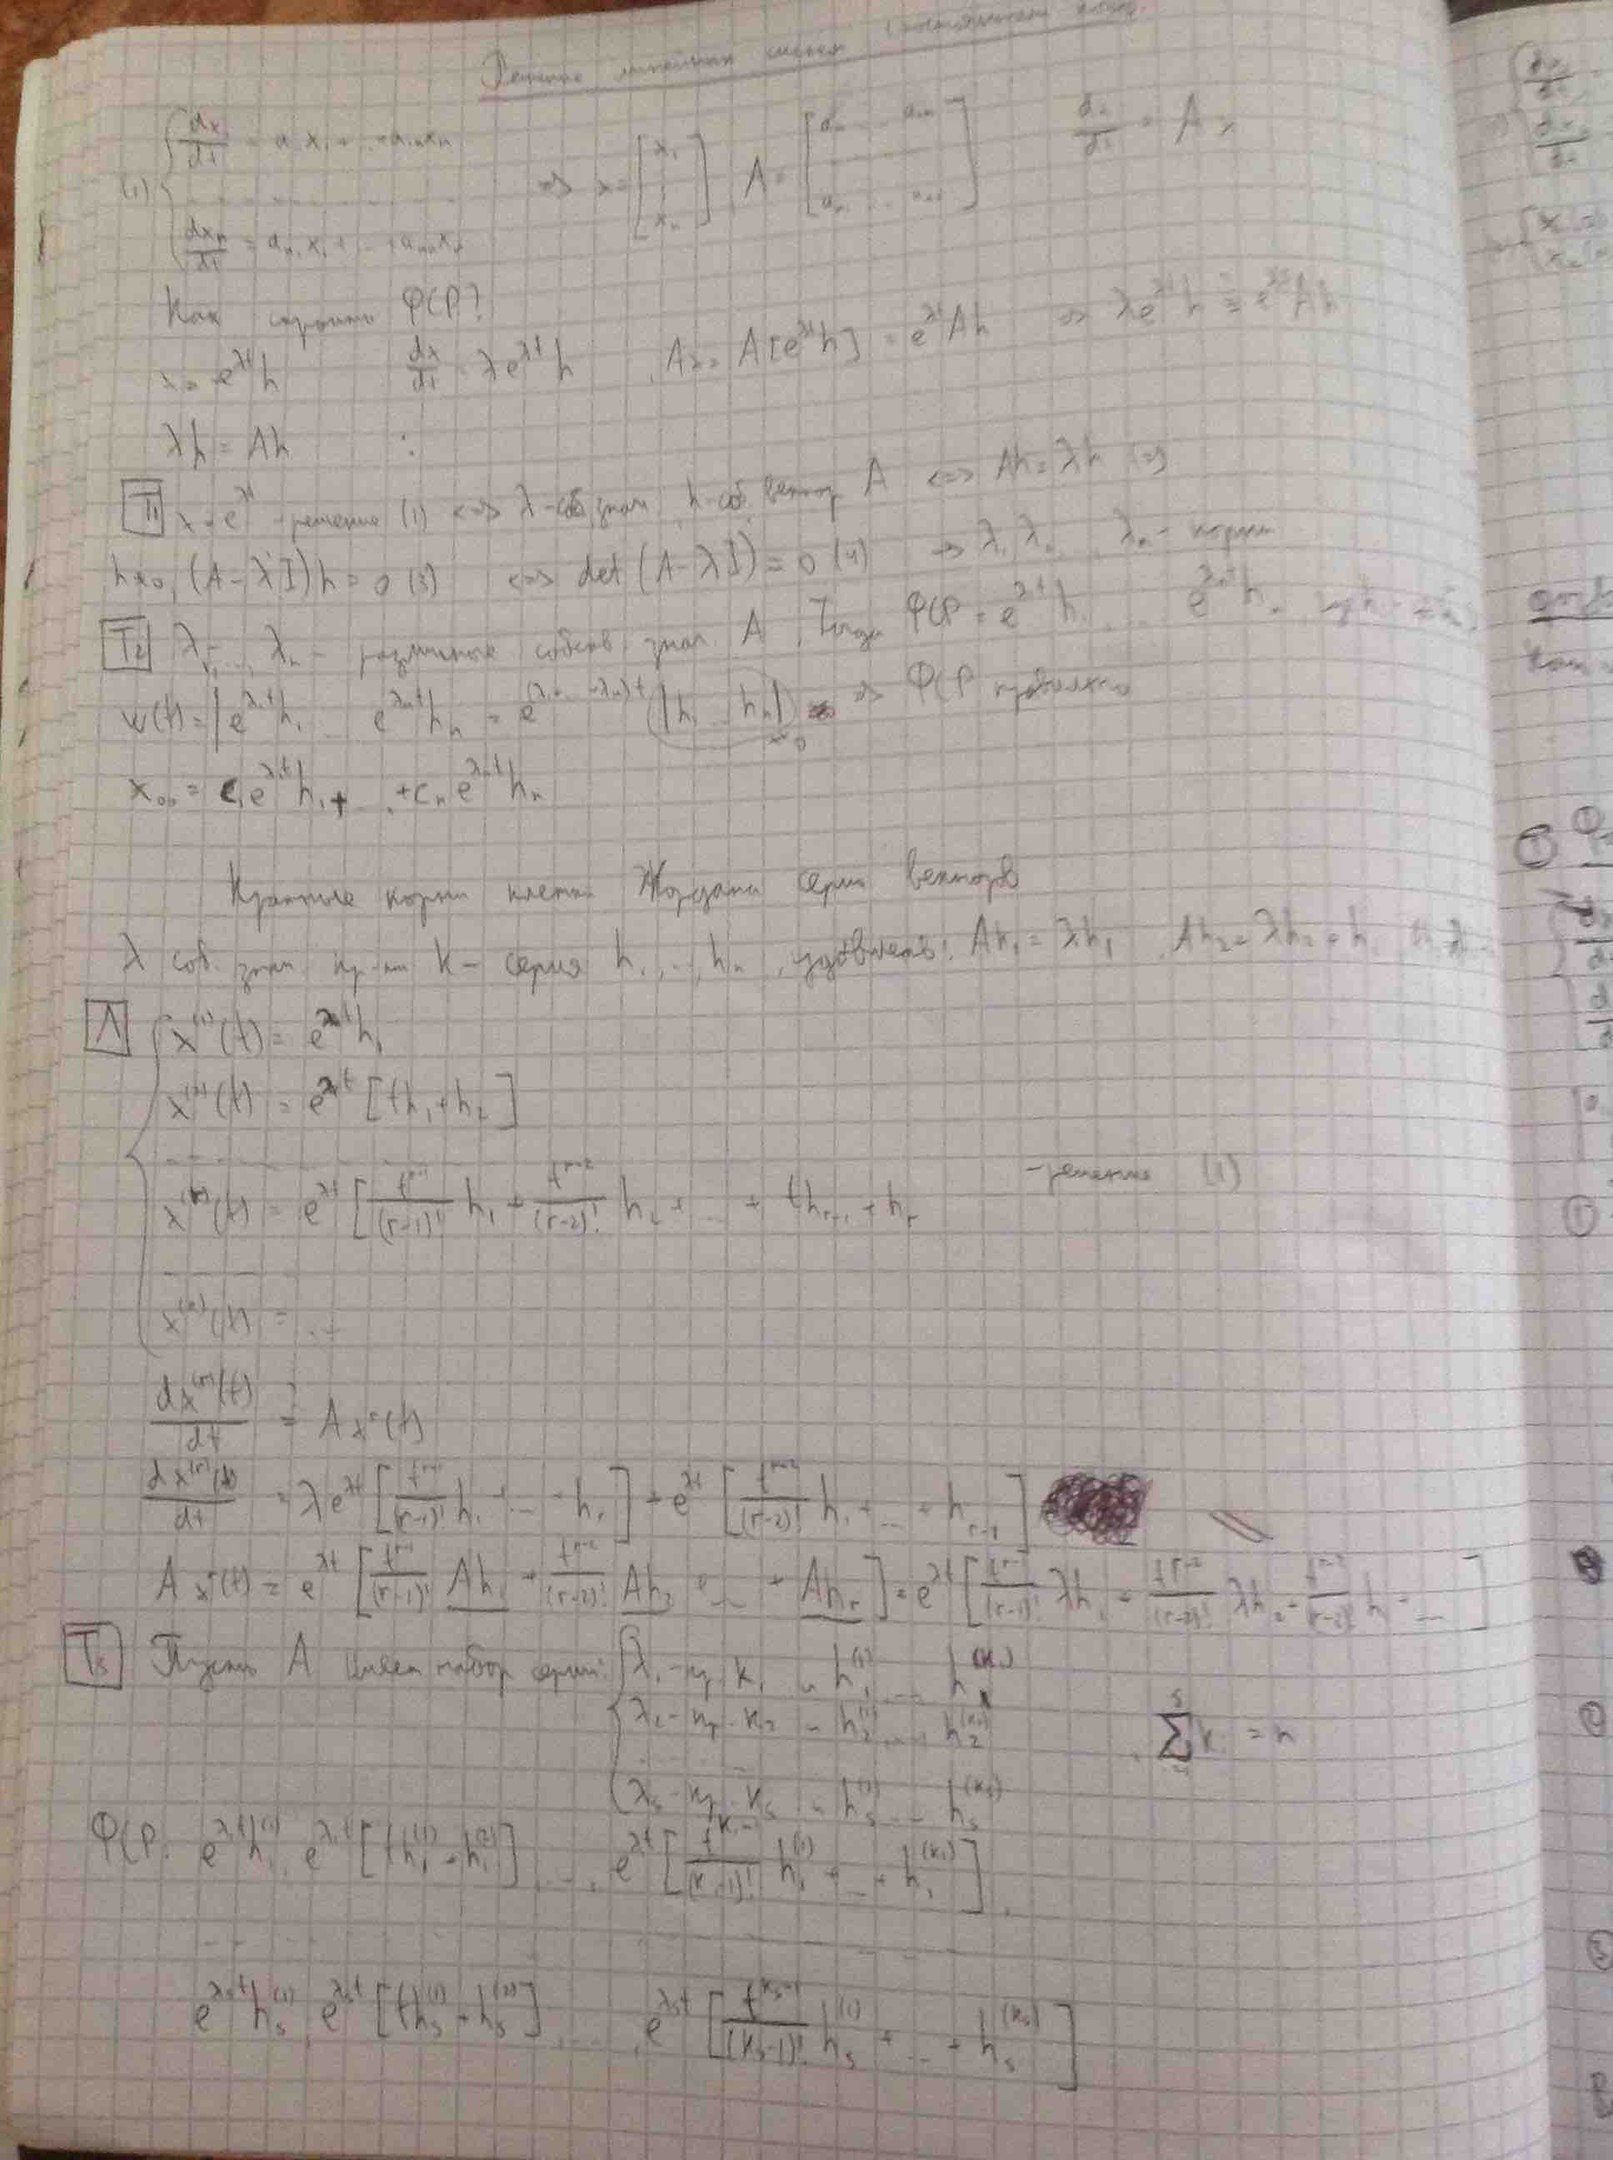 Решение линейных систем с постоянными коэф.
(1) { dx₁/dt = a₁₁x₁ + ... + a₁ₙxₙ
- - - - - - - - - ⇔ x = [x₁ ⋮ xₙ] A = [a₁₁ ... a₁ₙ ...... aₙ₁ ... aₙₙ] dx/dt = Ax
dxₙ/dt = aₙ₁x₁ + ... + aₙₙxₙ
Как строить ФСР?
x = e^{λt}h dx/dt = λe^{λt}h , Ax = A[e^{λt}h] = e^{λt}Ah ⇒ λe^{λt}h ≡
λh = Ah
T₁ x = e^{λt} - решение (1) ⇔ λ - соб. знач, h - соб. вектор A ⇔ Ah = λh ⇔
h≠0, (A - λI)h = 0 (3) ⇔ det(A - λI) = 0 (4) → λ₁, λ₂, ..., λₙ - корни
T₂ λ₁, ..., λₙ - различные собств. знач. A. Тогда ФСР = e^{λ₁t}h₁, ... e^{λₙt}hₙ
w(t) = |e^{λ₁t}h₁ ... e^{λₙt}hₙ| = e^{(λ₁+...+λₙ)t} |h₁ ... hₙ| ≠ 0 ⇒ ФСР
x₀₀ = c₁e^{λ₁t}h₁ + ... + cₙe^{λₙt}hₙ
Кратные корни клетки Жордана серии векторов
λ соб. знач. кр-ти k - серия h₁, ..., hₙ, удовлетв: Ah₁ = λh₁, Ah₂ = λh₂ + h₁
Л { x⁽¹⁾(t) = e^{λt}h₁
x⁽²⁾(t) = e^{λt}[th₁ + h₂]
- - - - - - - -
x⁽ʳ⁾(t) = e^{λt}[t^{r-1}/(r-1)! h₁ + t^{r-2}/(r-2)! h₂ + ... + th_{r-1} + h_r - решение (1)
- - - - -
x⁽ᵏ⁾(t) = ...
dx⁽ʳ⁾(t)/dt = Axʳ(t)
dx⁽ʳ⁾(t)/dt = λe^{λt}[t^{r-1}/(r-1)! h₁ + ... + h_r] + e^{λt}[t^{r-2}/(r-2)! h₁ + ... + h_{r-1}]
Axʳ(t) = e^{λt}[t^{r-1}/(r-1)! Ah₁ + t^{r-2}/(r-2)! Ah₂ + ... + Ah_r] = e^{λt}[t^{r-1}/(r-1)! λh₁ + t^{r-2}/(r-2)! λh₂ + t^{r-2}/(r-2)! h₁ + ...]
T₃ Пусть A имеет набор серий: { λ₁ - кр. k₁ - h₁⁽¹⁾ ... h₁⁽ᵏ¹⁾
λ₂ - кр. k₂ - h₂⁽¹⁾ ... h₂⁽ᵏ²⁾ , Σ kᵢ = n
- - - - -
λ_s - кр. k_s - h_s⁽¹⁾ ... h_s^{(k_s)}
ФСР: e^{λ₁t}h₁⁽¹⁾, e^{λ₁t}[th₁⁽¹⁾ + h₁⁽²⁾], ..., e^{λt}[t^{k₁-1}/(k₁-1)! h₁⁽¹⁾ + ... + h₁⁽ᵏ¹⁾],
- - - - - - - -
e^{λ_s t}h_s⁽¹⁾, e^{λ_s t}[th_s⁽¹⁾ + h_s⁽²⁾], ..., e^{λ_s t}[t^{k_s-1}/(k_s-1)! h_s⁽¹⁾ + ... + h_s^{(k_s)}]